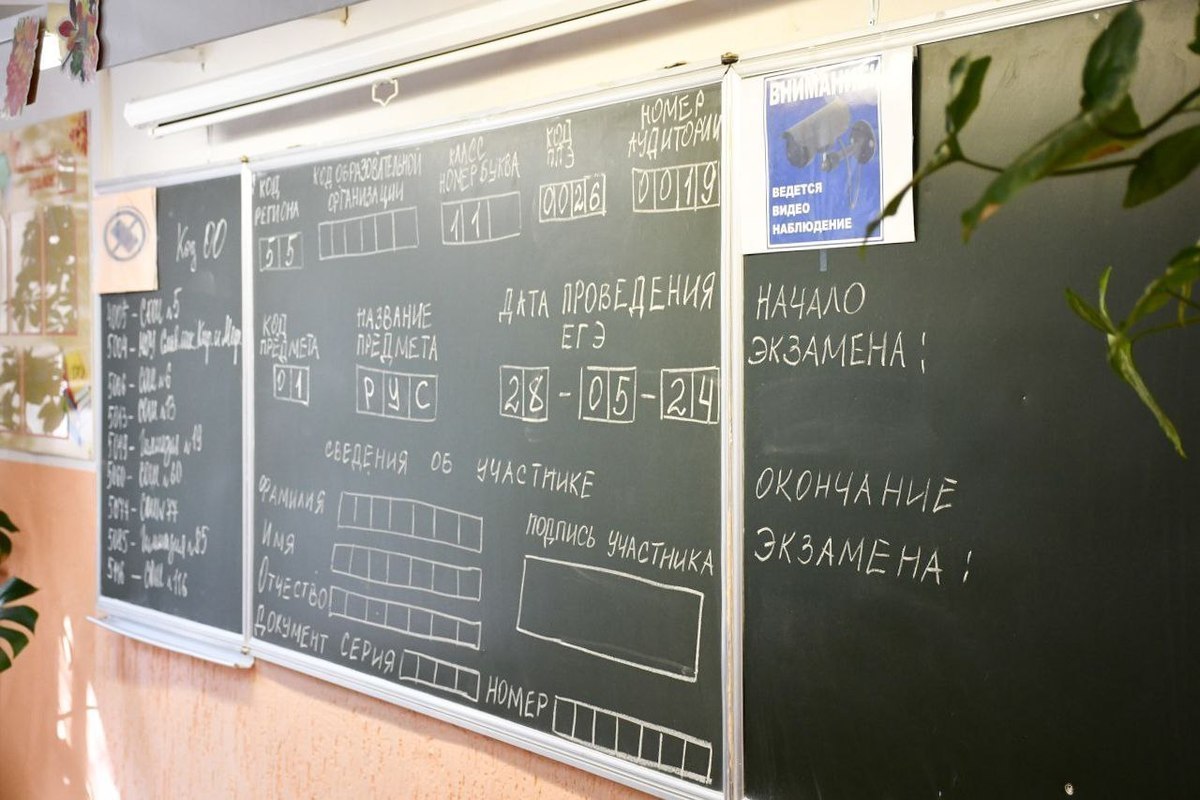 Код 00
СОШ №5
5006 - СОШ №6
5049 - Гимназия №19
5060 - СОШ №60
5077 - СОШ №77
5085 - Гимназия №85
СОШ №116
КОД
РЕГИОНА
55
КОД ОБРАЗОВАТЕЛЬНОЙ
ОРГАНИЗАЦИИ
КЛАСС
НОМЕР БУКВА
11
КОД
ППЭ
0026
НОМЕР
АУДИТОРИИ
0019
КОД
ПРЕДМЕТА
01
НАЗВАНИЕ
ПРЕДМЕТА
РУС
ДАТА ПРОВЕДЕНИЯ
ЕГЭ
28-05-24
СВЕДЕНИЯ ОБ УЧАСТНИКЕ
ФАМИЛИЯ
ИМЯ
ОТЧЕСТВО
ДОКУМЕНТ СЕРИЯ
НОМЕР
ПОДПИСЬ УЧАСТНИКА
ВНИМАНИЕ
ВЕДЕТСЯ
ВИДЕО
НАБЛЮДЕНИЕ
НАЧАЛО
ЭКЗАМЕНА:
ОКОНЧАНИЕ
ЭКЗАМЕНА: